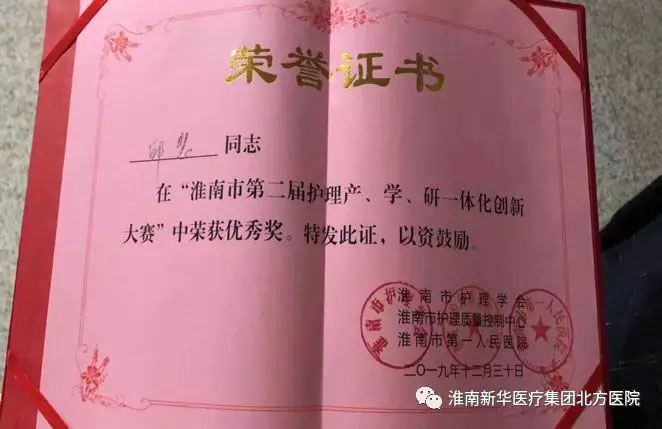 荣誉证书
邱慧 同志
在“淮南市第二届护理产、学、研一体化创新
大赛”中荣获优秀奖。特发此证，以资鼓励。
淮南市护理学会
淮南市护理质量控制中心
淮南市第一人民医院
二〇一九年十二月三十日
淮南新华医疗集团北方医院